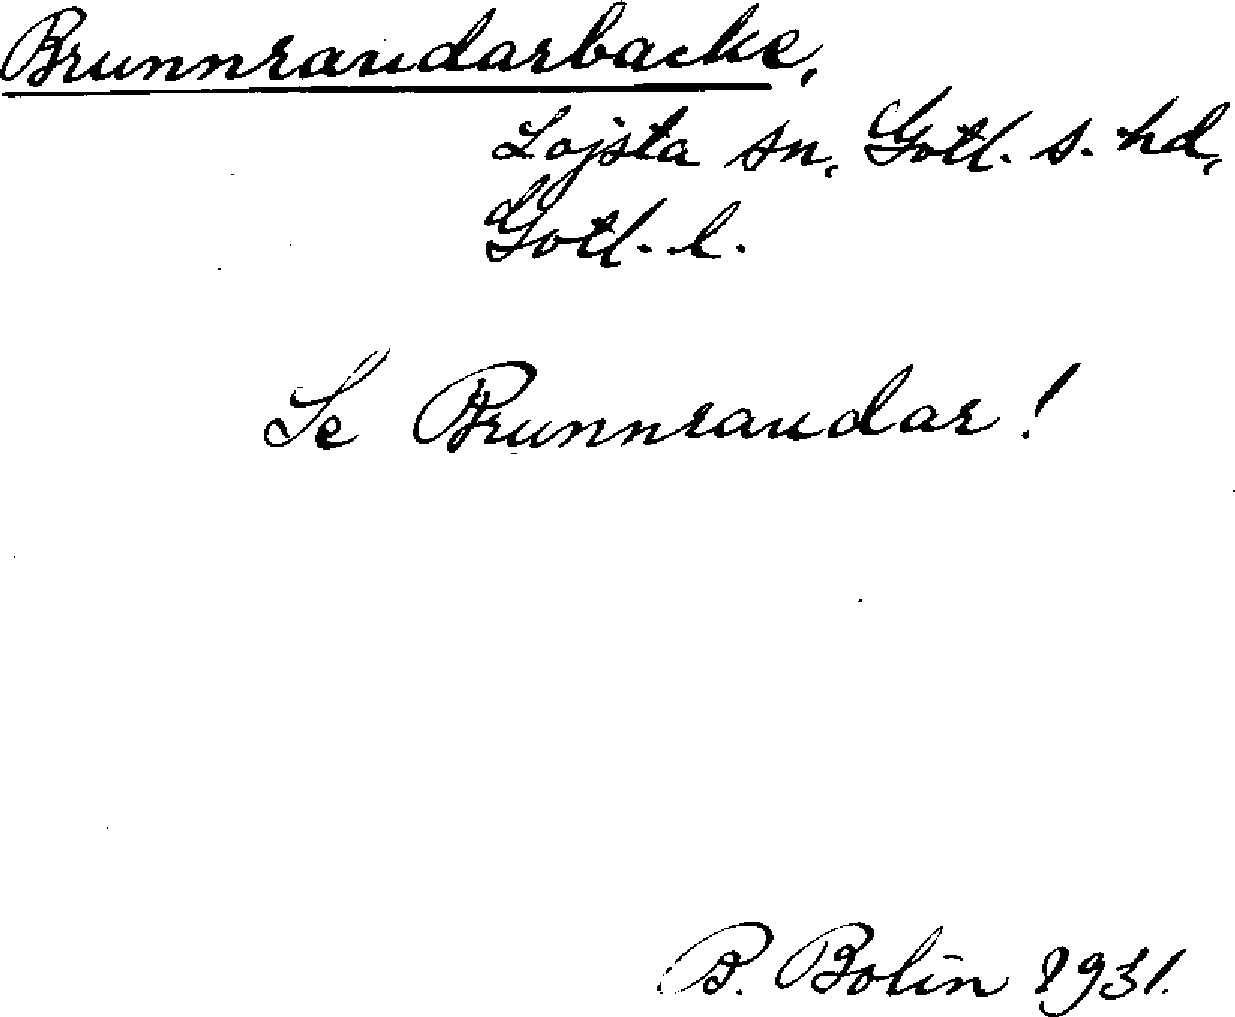 Brunnraudarbacke,
Lojsta sn, Gotl. s. hd,
Gotl. l.
Se Brunnraudar!
B. Bolin 1931.